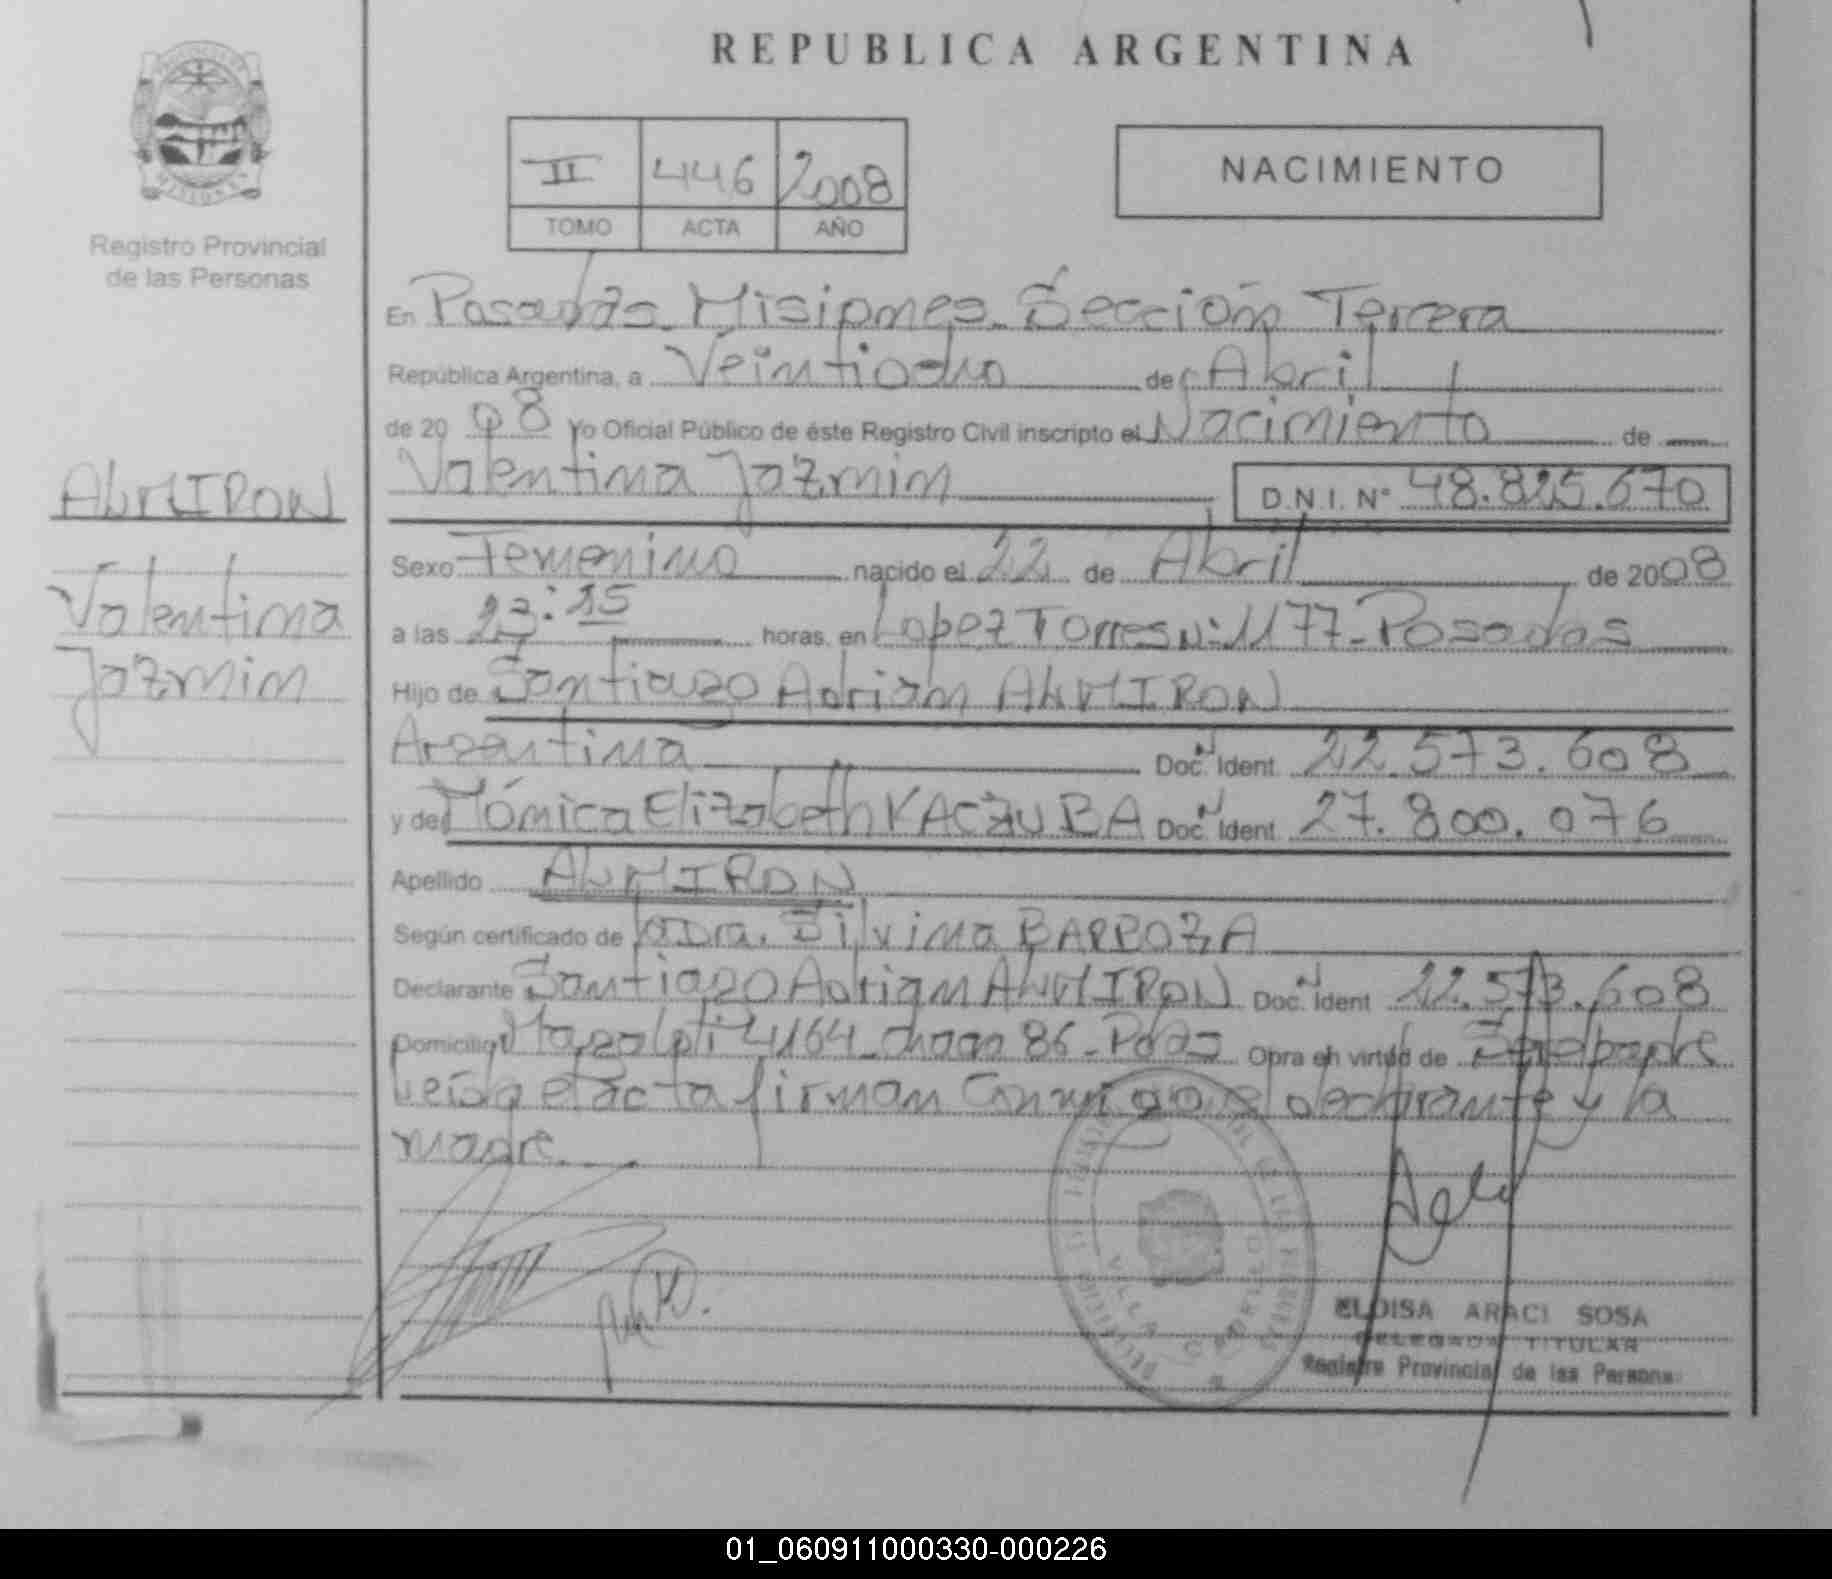 REPUBLICA ARGENTINA
Registro Provincial
de las Personas
II 446 2008
TOMO ACTA AÑO
NACIMIENTO
En Posadas Misiones Sección Tercera
República Argentina, a Veintiocho de Abril
de 2008 Yo Oficial Público de éste Registro Civil inscripto el Nacimiento de
Valentina Jazmin D.N.I. N° 48.825.670
ALMIRON
Valentina
Jazmin
Sexo Femenino nacido el 22 de Abril de 2008
a las horas, en Lopez Torres N: 1177 - Posadas
Hijo de Santiago Adrian ALMIRON
Argentina Doc. N Ident. 22.573.608
y de Mónica Elizabeth KACZUBA Doc. N Ident. 27.800.076
Apellido ALMIRON
Según certificado de la Dra. Silvina BARROZA
Declarante Santiago Adrian ALMIRON Doc. N Ident. 22.573.608
Domicilio 4164 - 86 - Pdas Obra en virtud de Ser el padre
Leída el acta firman Conmigo el declarante y la
madre.
VILLA CABELLO
ELOISA ARACI SOSA
DELEGADA TITULAR
Registro Provincial de las Personas
01_060911000330-000226